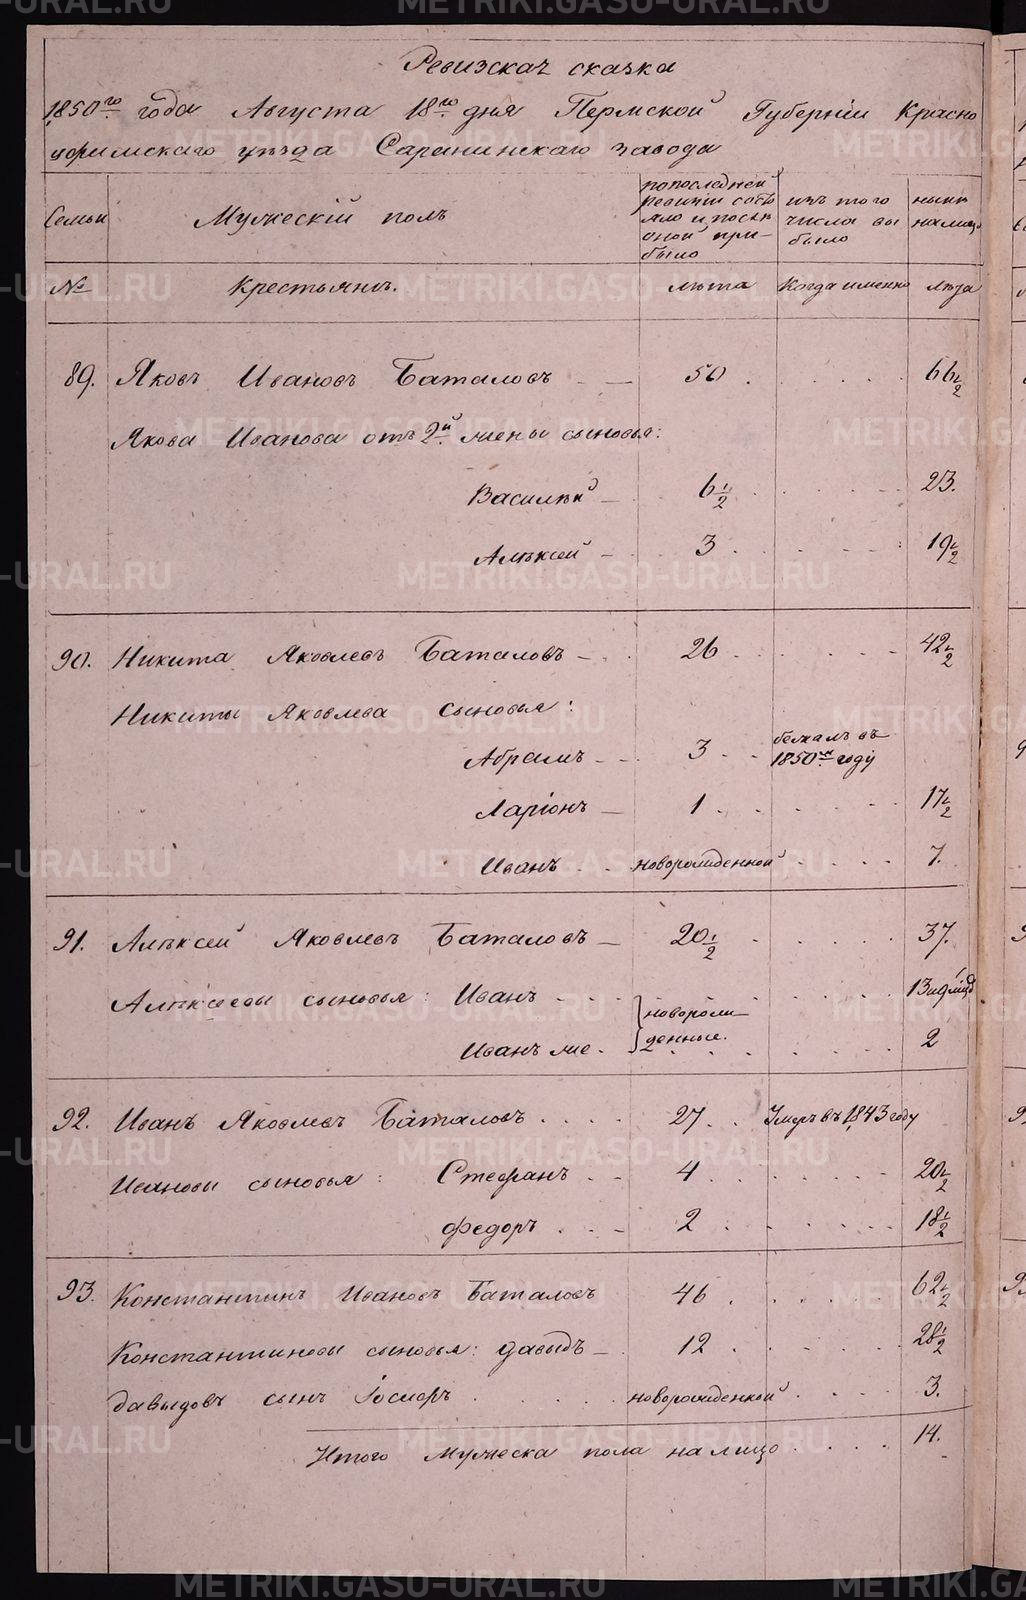 Ревизская сказка
1850го года Августа 18го дня Пермской Губернiи Красно
уфимскаго уѣзда Саранинскаго завода
Семьи
Мужескiй полъ
попоследней ревизiи состояло и после оной прибыло
изъ того числа выбыло
ныне налицо
№
Крестьянъ.
лѣта
Когда именно
лѣта
89. Яковъ Ивановъ Баталовъ — 50 . . . . 66 1/2
Якова Иванова отъ 2й жены сыновья:
Василѣй — 6 1/2 . . . . 23.
Алѣксей — 3 . . . . 19 1/2
90. Никита Яковлевъ Баталовъ — 26 . . . . 42 1/2
Никиты Яковлева сыновья:
Абрамъ — 3 . . бежалъ въ 1850м году
Ларiонъ — 1 . . . . 17 1/2
Иванъ . . новорожденной . . . . 7.
91. Алѣксей Яковлевъ Баталовъ — 20 1/2 . . . . 37.
Алѣксеевы сыновья: Иванъ . . . . 13 и 9 мѣс
новорожденные.
Иванъ же . . . . . 2
92. Иванъ Яковлевъ Баталовъ . . . . 27 . . Умръ въ 1843 году
Ивановы сыновья: Стефанъ . . 4 . . . . 20 1/2
Федоръ . . . 2 . . . . 18 1/2
93. Константинъ Ивановъ Баталовъ 46 . . . . 62 1/2
Константиновы сыновья: Давыдъ — 12 . . . . 28 1/2
Давыдовъ сынъ . . . новорожденной . . . . 3.
Итого Мужеска пола налицо . . . . 14.
METRIKI.GASO-URAL.RU